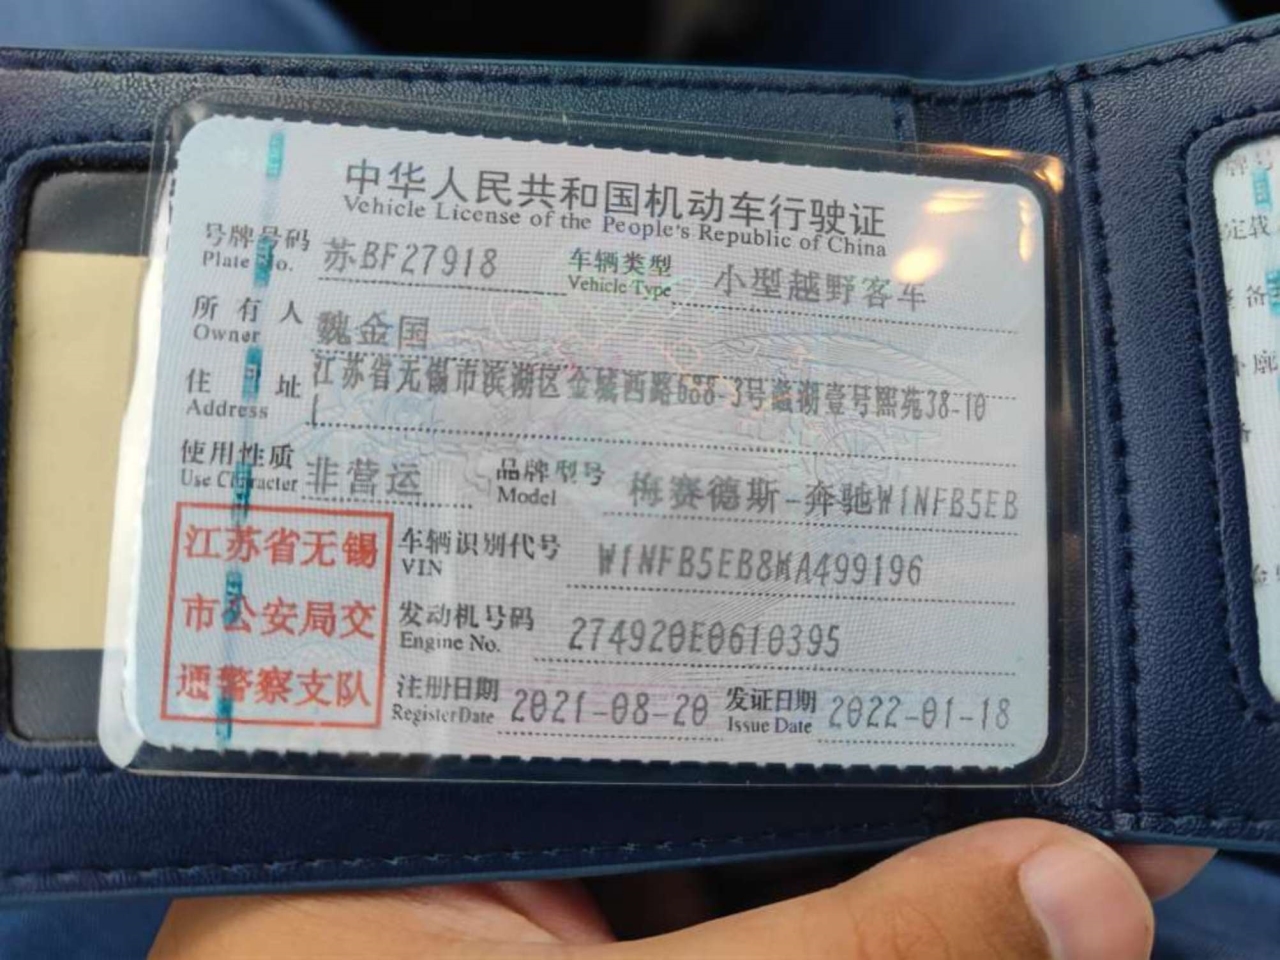 中华人民共和国机动车行驶证
Vehicle License of the People's Republic of China
号牌号码 苏BF27918 车辆类型 小型越野客车
Plate No. Vehicle Type
所有人 魏金国
Owner
住址 江苏省无锡市滨湖区金城西路688-3号蠡湖壹号熙苑38-10
Address
使用性质 非营运 品牌型号 梅赛德斯-奔驰W1NFB5EB
Use Character Model
江苏省无锡
市公安局交
通警察支队
车辆识别代号 W1NFB5EB8MA499196
VIN
发动机号码 274920E0610395
Engine No.
注册日期 2021-08-20 发证日期 2022-01-18
Register Date Issue Date